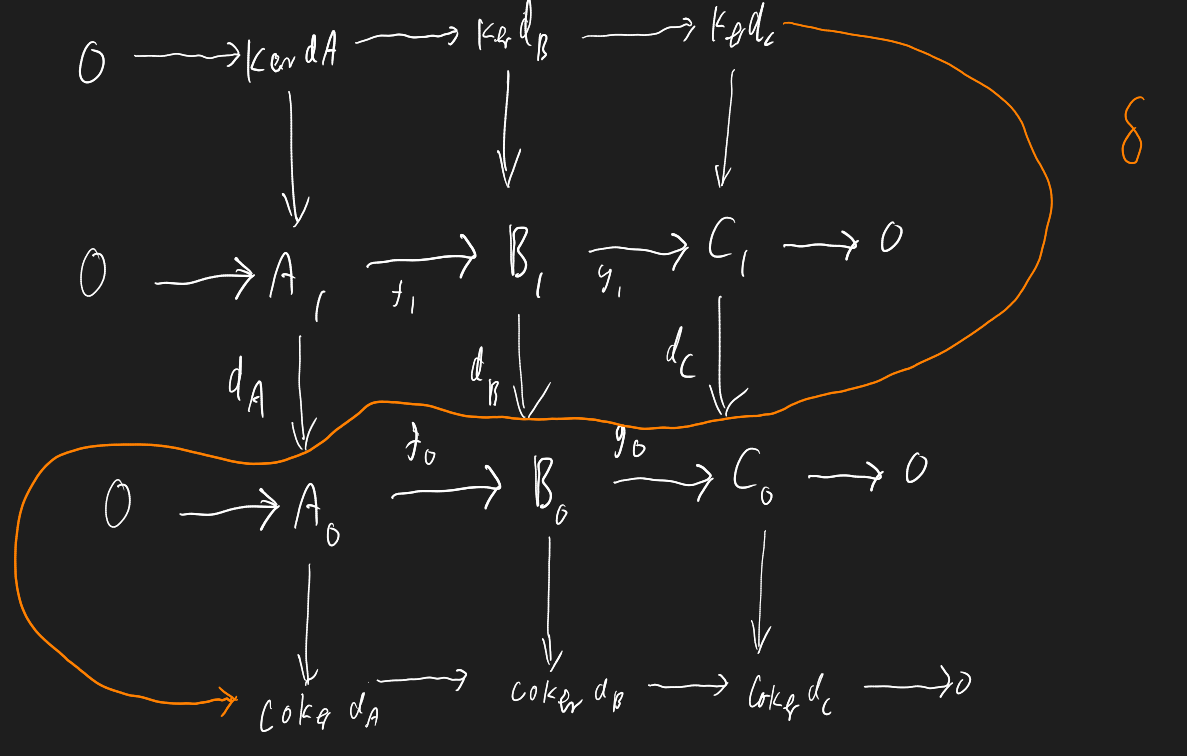 0 → ker dA → ker d_B → ker d_C
δ
0 → A_1 → B_1 → C_1 → 0
f_1 g_1
d_A d_B d_C
f_0 g_0
0 → A_0 → B_0 → C_0 → 0
coker d_A → coker d_B → coker d_C → 0